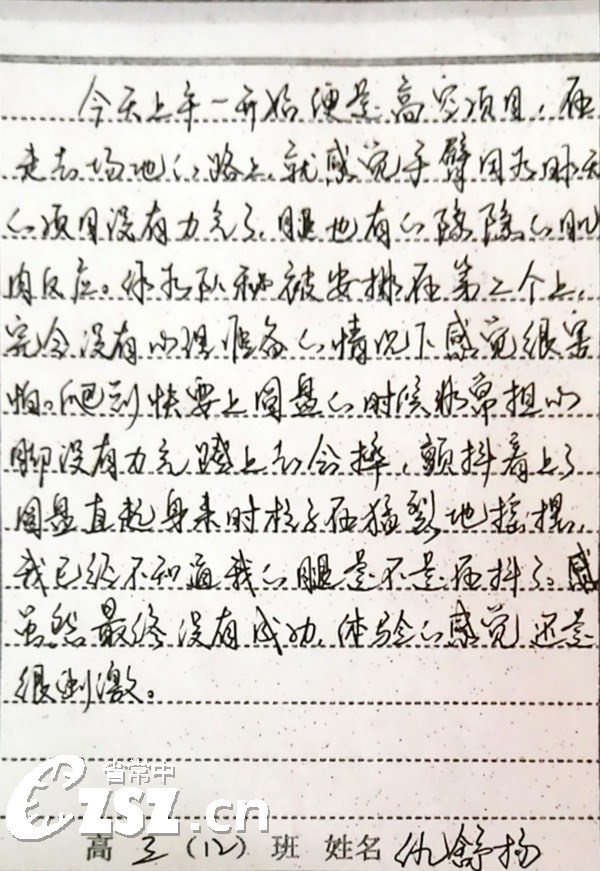 今天上午一开始便是高空项目，在
走去场地的路上，就感觉手臂因为昨天
的项目没有力气了，腿也有的隐隐的肌
肉反应。作为队秘被安排在第二个上，
完全没有心理准备的情况下感觉很害
怕。爬到快要上圆盘的时候非常担心
脚没有力气蹬上去会摔，颤抖着上了
圆盘直起身来时柱子在猛烈地摇摆，
我已经不知道我的腿是不是在抖了。感
虽然最终没有成功，体验的感觉还是
很刺激。
省常中
CZSZ.cn
高 三 (12) 班 姓名 仇舒扬